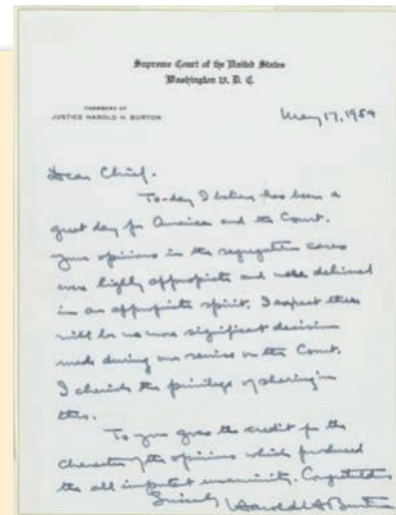 Supreme Court of the United States
Washington 13, D. C.
CHAMBERS OF
JUSTICE HAROLD H. BURTON
May 17, 1954
Dear Chief.
To-day I believe has been a
great day for America and the Court.
Your opinions in the segregation cases
were highly appropriate and were delivered
in an appropriate spirit. I expect there
will be no more significant decision
made during our service on the Court.
I cherish the privilege of sharing in
this.
To you goes the credit for the
character of the opinions which produced
the all important unanimity. Congratulations
Sincerely
Harold H. Burton